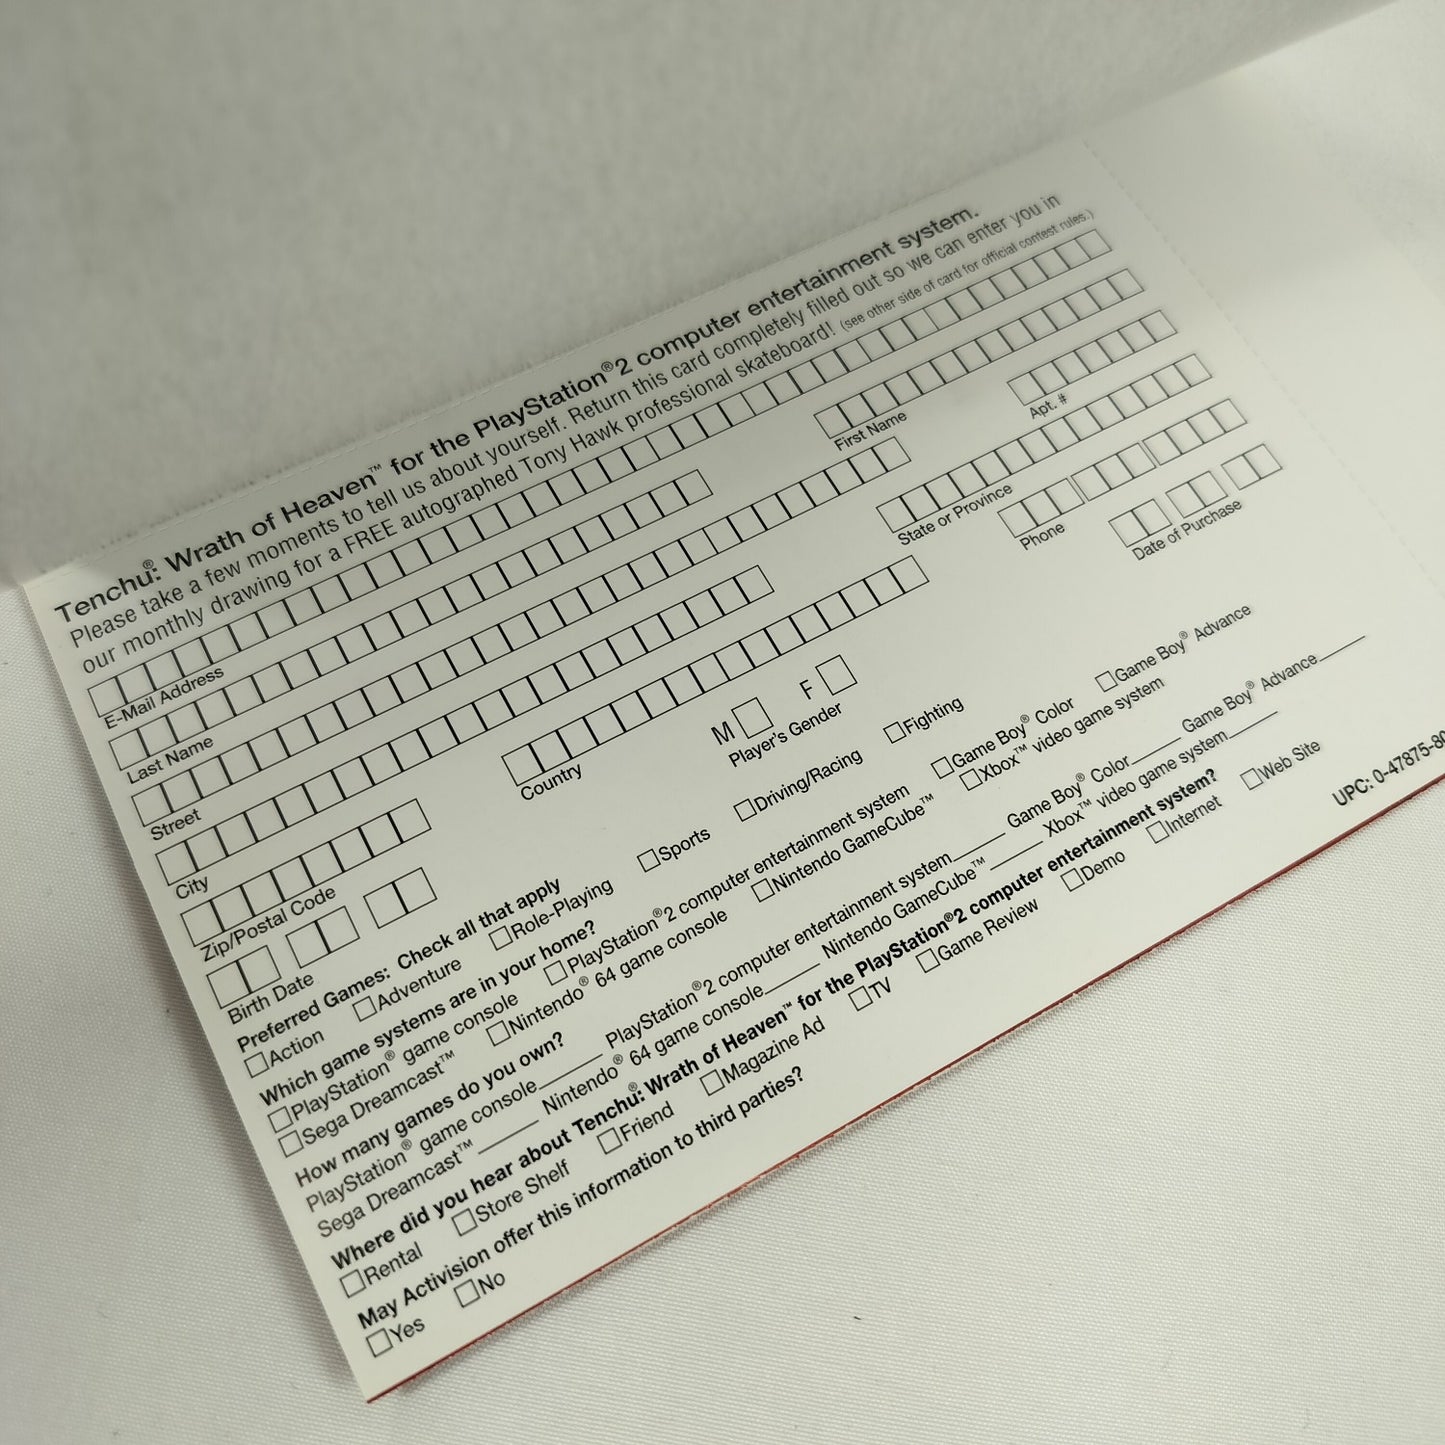 Tenchu®: Wrath of Heaven™ for the PlayStation®2 computer entertainment system.
Please take a few moments to tell us about yourself. Return this card completely filled out so we can enter you in
our monthly drawing for a FREE autographed Tony Hawk professional skateboard! (see other side of card for official contest rules.)
E-Mail Address
Last Name First Name
Street Apt. #
City State or Province
Zip/Postal Code Country Phone
Birth Date M F Date of Purchase
Player's Gender
Preferred Games: Check all that apply
Action Adventure Role-Playing Sports Driving/Racing Fighting
Which game systems are in your home?
PlayStation® game console PlayStation®2 computer entertainment system Game Boy® Color Game Boy® Advance
Sega Dreamcast™ Nintendo® 64 game console Nintendo GameCube™ Xbox™ video game system
How many games do you own?
PlayStation® game console______ PlayStation®2 computer entertainment system_____ Game Boy® Color_____ Game Boy® Advance_____
Sega Dreamcast™ ______ Nintendo® 64 game console______ Nintendo GameCube™ ______ Xbox™ video game system______
Where did you hear about Tenchu®: Wrath of Heaven™ for the PlayStation®2 computer entertainment system?
Rental Store Shelf Friend Magazine Ad TV Game Review Demo Internet Web Site
May Activision offer this information to third parties?
Yes No
UPC: 0-47875-80